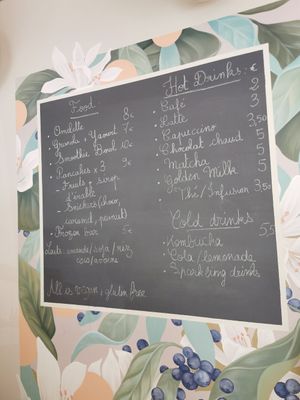 Food
Omelette 8€
Granola + Yaourt 7€
Smoothie Bowl 10€
Pancakes x 3 9€
- Fruits + sirop
d'érable
- Snickers (choco,
caramel, peanut)
Frozen bar 5€
Laits: amande/soja/riz
coco/avoine
All is vegan, gluten free
Hot Drinks: €
Café 2
Latte 3
Capuccino 3,50
Chocolat chaud 5
Matcha 5
Golden Milk 5
Thé/Infusion 3,50
Cold drinks
Kombucha 5,5
Cola/lemonade
Sparkling drinks